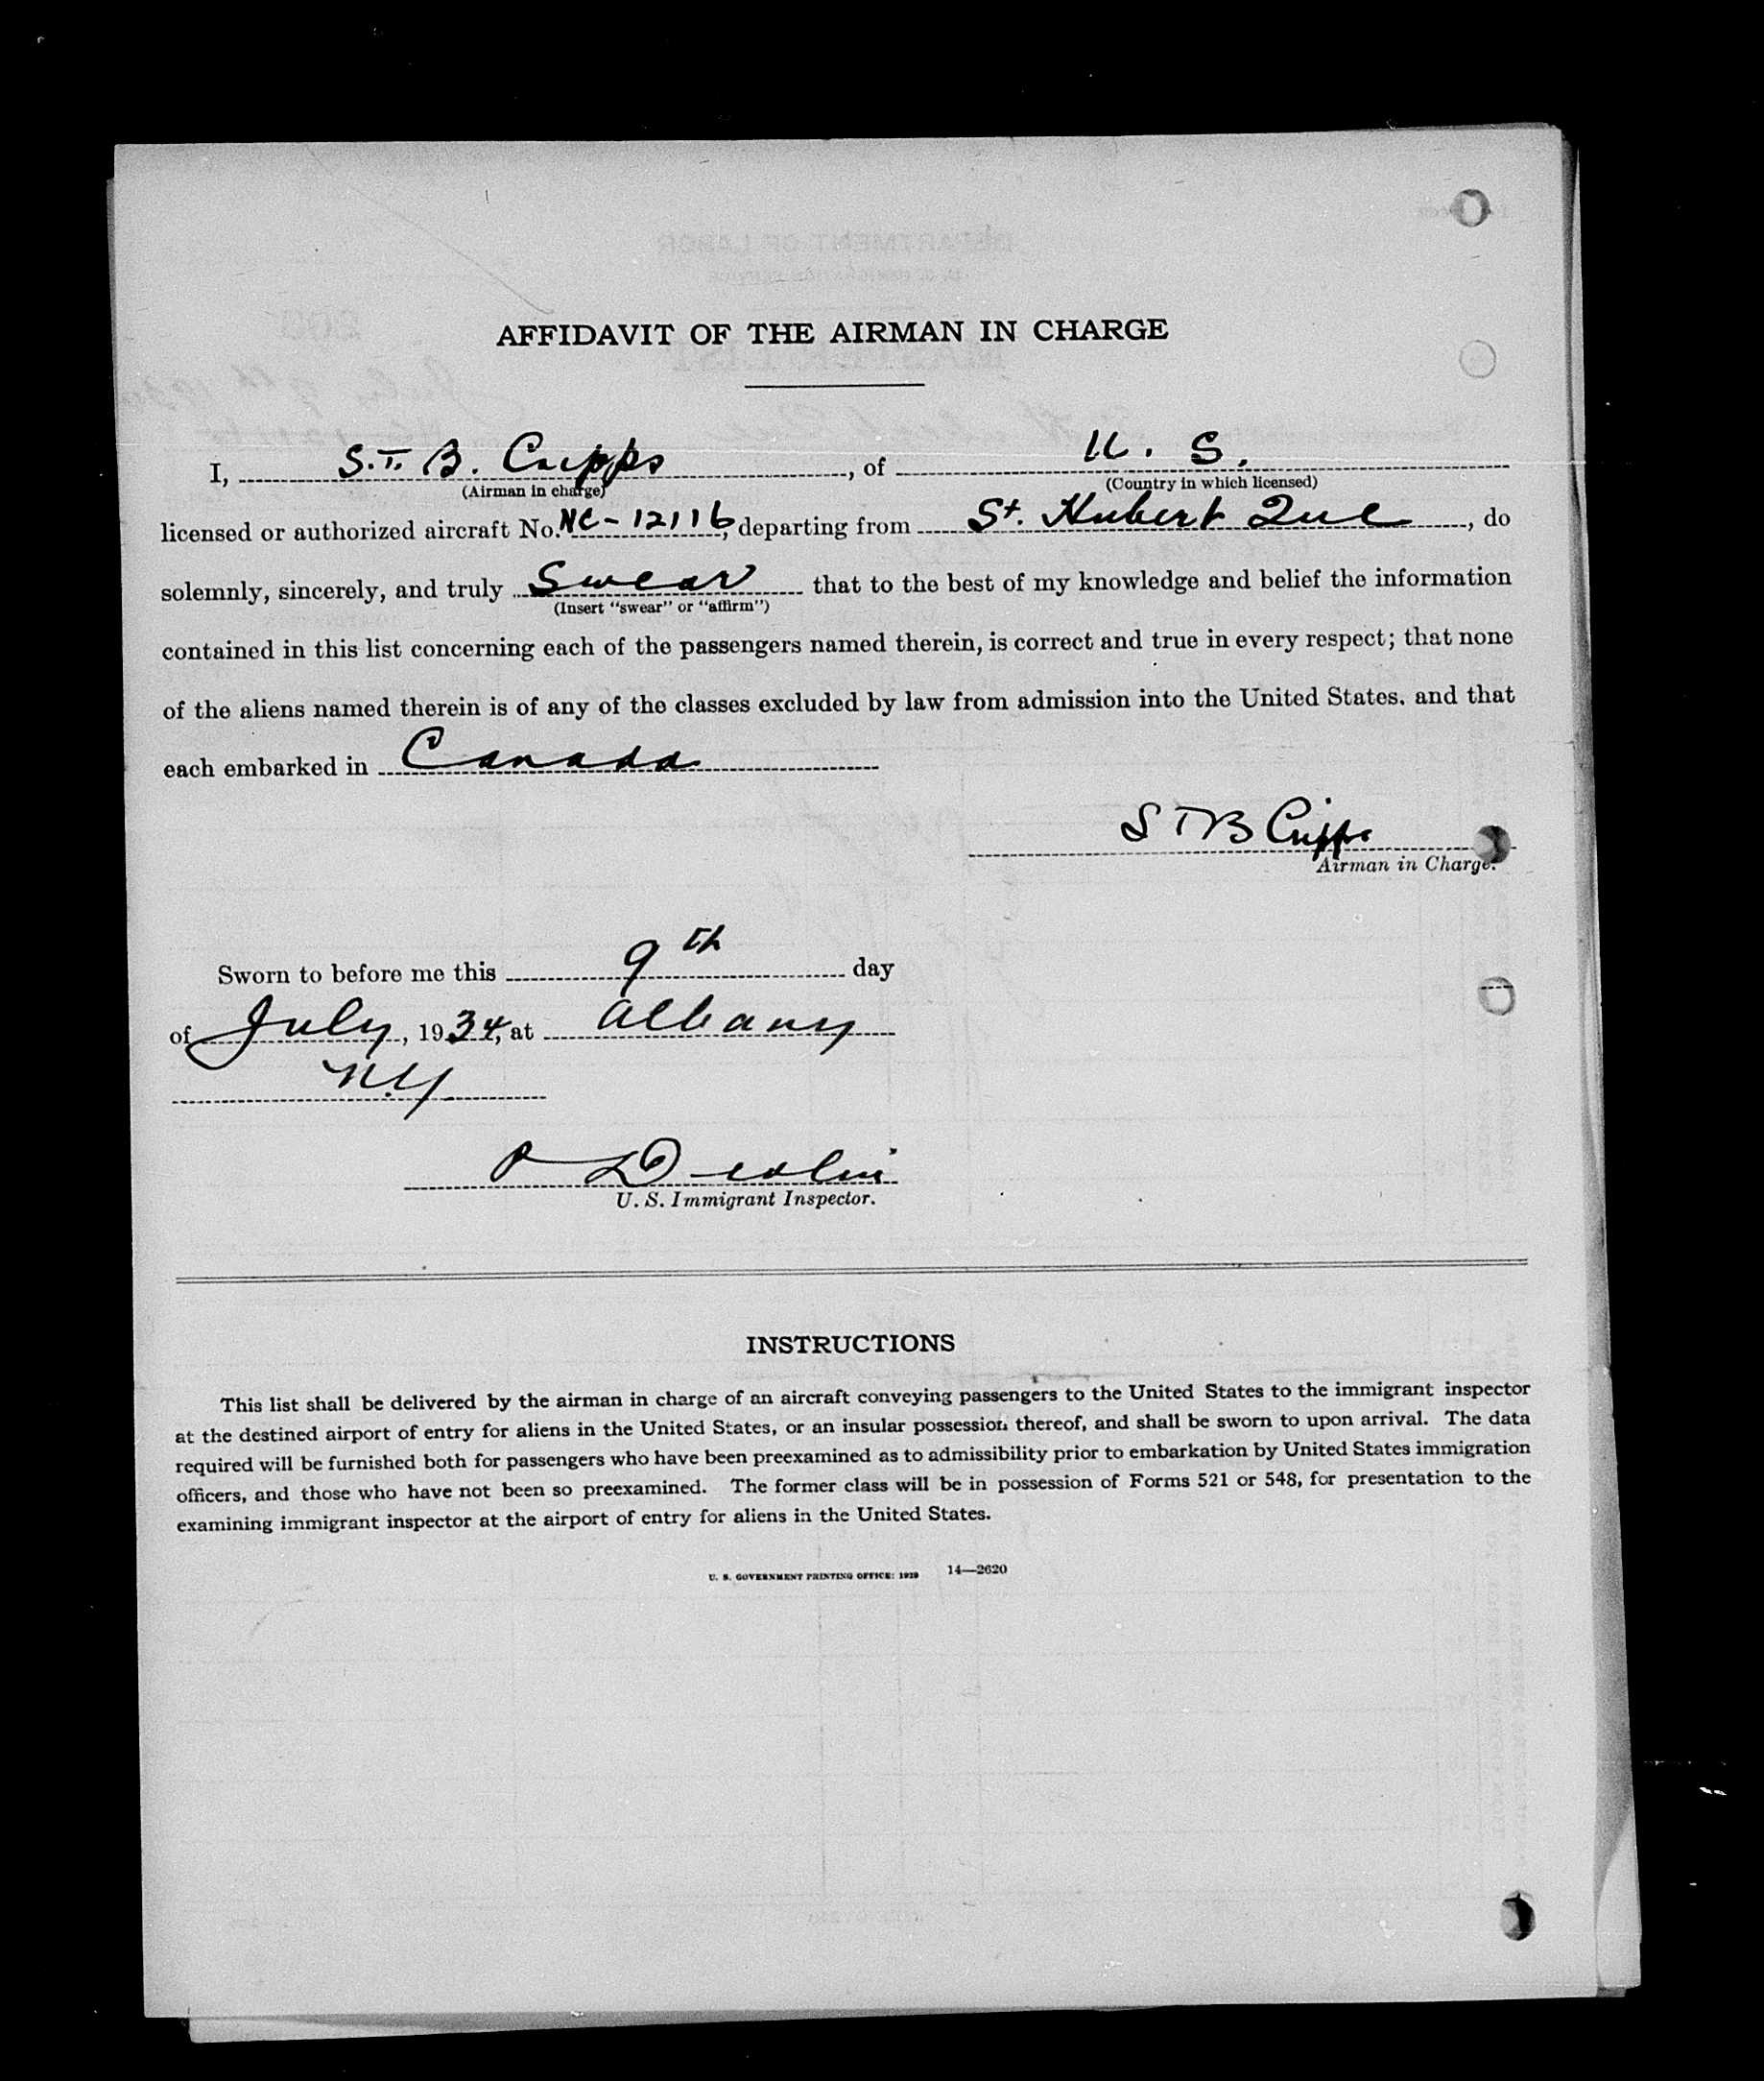 AFFIDAVIT OF THE AIRMAN IN CHARGE
I, S.T.B. Cripps, of U. S.
(Airman in charge) (Country in which licensed)
licensed or authorized aircraft No. NC-12116, departing from St. Hubert Que, do
solemnly, sincerely, and truly Swear that to the best of my knowledge and belief the information
(Insert "swear" or "affirm")
contained in this list concerning each of the passengers named therein, is correct and true in every respect; that none
of the aliens named therein is of any of the classes excluded by law from admission into the United States, and that
each embarked in Canada
S T B Cripps
Airman in Charge.
Sworn to before me this 9th day
of July, 1934, at Albany
N.Y.
U. S. Immigrant Inspector.
INSTRUCTIONS
This list shall be delivered by the airman in charge of an aircraft conveying passengers to the United States to the immigrant inspector
at the destined airport of entry for aliens in the United States, or an insular possession thereof, and shall be sworn to upon arrival. The data
required will be furnished both for passengers who have been preexamined as to admissibility prior to embarkation by United States immigration
officers, and those who have not been so preexamined. The former class will be in possession of Forms 521 or 548, for presentation to the
examining immigrant inspector at the airport of entry for aliens in the United States.
U. S. GOVERNMENT PRINTING OFFICE: 1929 14—2620